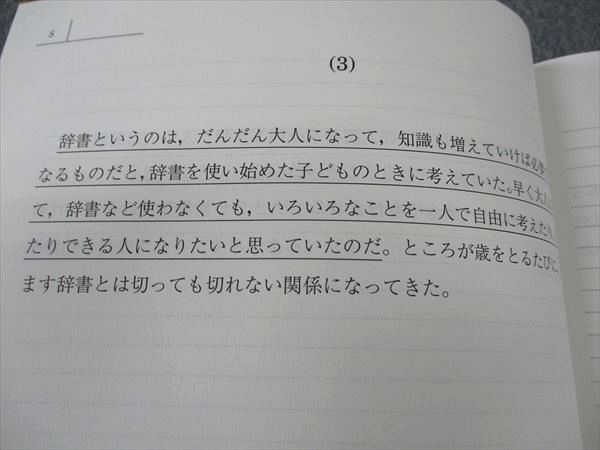 8
(3)
辞書というのは，だんだん大人になって，知識も増えていけば必要
なるものだと，辞書を使い始めた子どものときに考えていた。早く大人
て，辞書など使わなくても，いろいろなことを一人で自由に考えたり
たりできる人になりたいと思っていたのだ。ところが歳をとるたびに
ます辞書とは切っても切れない関係になってきた。